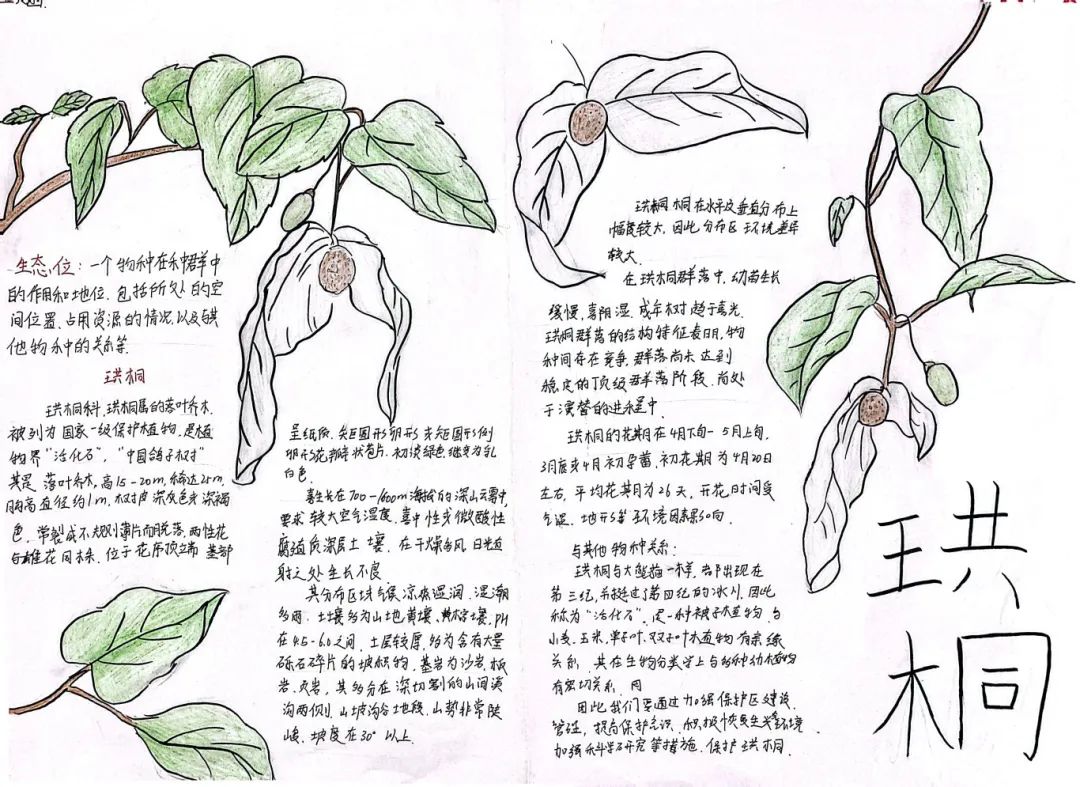 生态位：一个物种在种群中
的作用和地位，包括所处的空
间位置，占用资源的情况以及与其
他物种的关系等.
珙桐
珙桐科，珙桐属的落叶乔木.
被列为国家一级保护植物，是植
物界“活化石”，“中国鸽子树”
其是落叶乔木，高15-20m，稀达25m，
胸高直径约1m，树皮深灰色或深褐
色，常裂成不规则薄片而脱落，两性花
与雄花同株，位于花序顶端 基部
呈纸质，矩圆形卵形或矩圆形倒
卵形花瓣状苞片，初淡绿色继变为乳
白色.
喜生长在700-1600m海拔的深山云雾中，
要求较大空气湿度，喜中性或微酸性
腐殖质深层土壤，在干燥多风、日光直
射之处生长不良.
其分布区域气候凉爽湿润，湿潮
多雨. 土壤多为山地黄壤、黄棕壤，PH
在4.5-6.0之间，土层较厚，多为含有大量
砾石碎片的坡积物，基岩为沙岩，板
岩、灰岩，其多分在深切割的山间溪
沟两侧，山坡沟谷地段，山势非常陡
峻，坡度在30°以上.
珙桐桐在水平及垂直分布上
幅度较大，因此分布区环境差异
较大.
在珙桐群落中，幼苗生长
缓慢，喜阴湿，成年树趋于喜光.
珙桐群落的结构特征表明，物
种间存在竞争，群落尚未达到
稳定的顶级群落阶段，尚处
于演替的进程中.
珙桐的花期在4月下旬-5月上旬，
3月底或4月初孕蕾，初花期为4月20日
左右，平均花期为26天，开花时间受
气温、地形等环境因素影响.
与其他物种关系：
珙桐与大熊猫一样，都出现在
第三纪，并挺过了第四纪的冰川，因此
称为“活化石”，是一种被子植物，与
小麦、玉米，单子叶、双子叶植物有亲缘
关系，其在生物分类学上与多种动植物
有密切关系. 网
因此，我们要通过加强保护区建设、
管理，提高保护意识，积极恢复生光环境
加强科学研究等措施，保护珙桐.
珙
桐